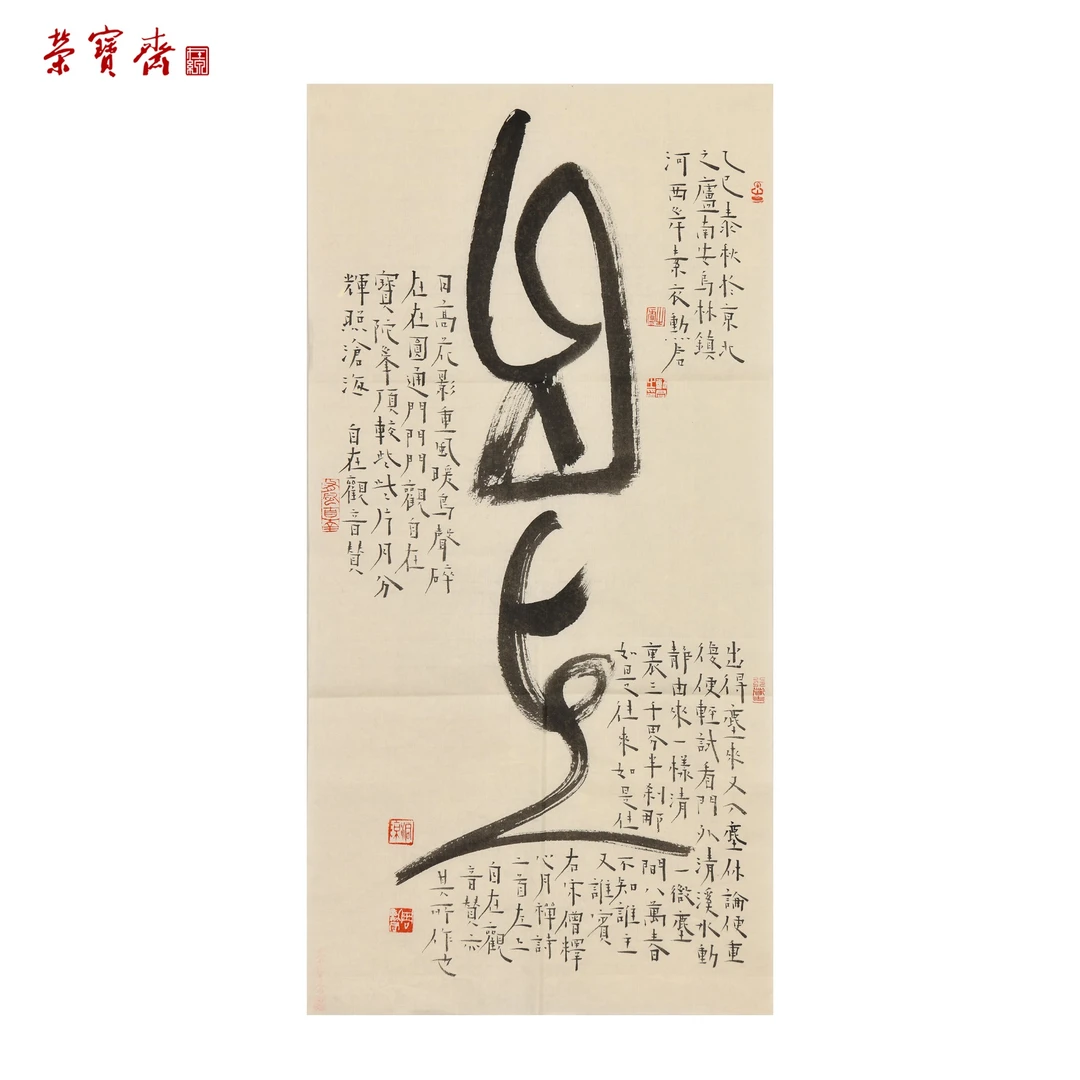 榮寶齋
自在
乙巳泰秋於京北
之廬南安烏林鎮
河西岸素衣勳居
出得塵來又入塵休論便重
復便輕試看門外清溪水動
靜由來一樣清 一微塵
裏三千界半剎那間八萬春
如是往來如是住不知誰主
又誰賓
右宋僧釋
心月禪詩
二首左上
自在觀
音贊亦
其所作也
日高花影重風暖鳥聲碎
在在圓通門門門觀自在
寶陀峯頂較些些片月分
輝照滄海 自在觀音贊